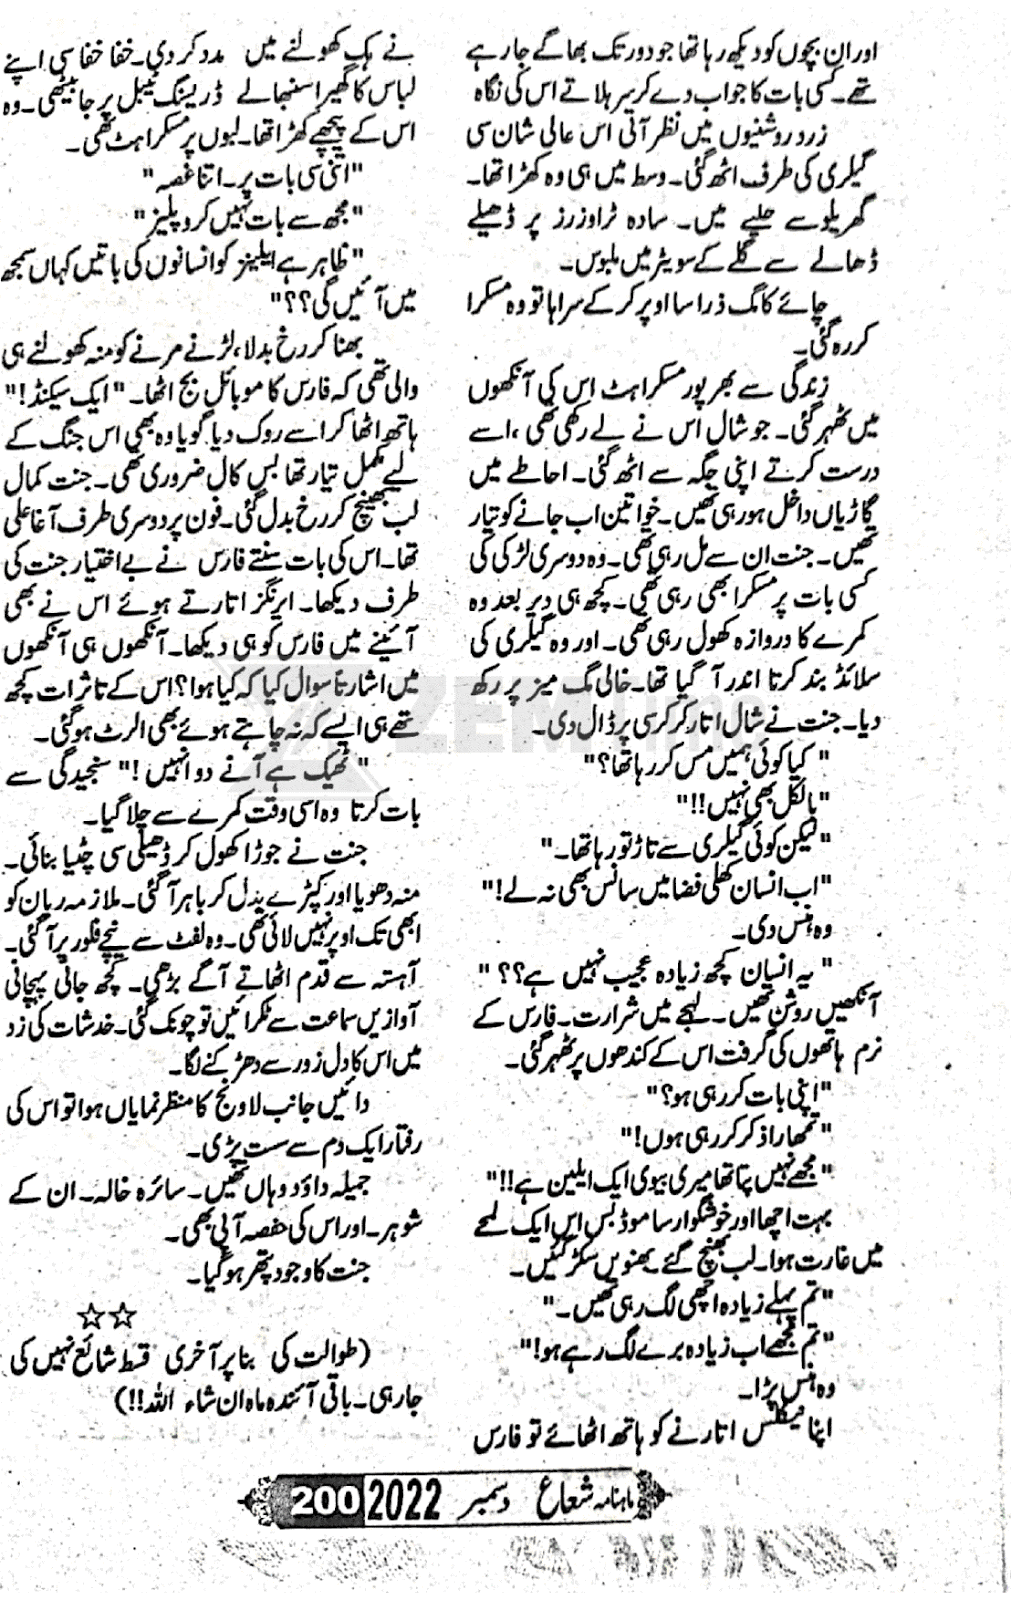 اور ان بچوں کو دیکھ رہا تھا جو دور تک بھاگے جا رہے
تھے۔ کسی بات کا جواب دے کر سر ہلاتے اس کی نگاہ
زرد روشنیوں میں نظر آتی اس عالی شان سی
گیلری کی طرف اٹھ گئی۔ وسط میں ہی وہ کھڑا تھا۔
گھریلو سے حلیے میں۔ سادہ ٹراؤزرز پر ڈھیلے
ڈھالے سے گلے کے سویٹر میں ملبوس۔
چائے کا مگ ذرا سا اوپر کر کے سراہا تو وہ مسکرا
کر رہ گئی۔
زندگی سے بھرپور مسکراہٹ اس کی آنکھوں
میں ٹھہر گئی۔ جو شال اس نے لے رکھی تھی، اسے
درست کرتے اپنی جگہ سے اٹھ گئی۔ احاطے میں
گاڑیاں داخل ہو رہی تھیں۔ خواتین اب جانے کو تیار
تھیں۔ جنت ان سے مل رہی تھی۔ وہ دوسری لڑکی کی
کسی بات پر مسکرا بھی رہی تھی۔ کچھ ہی دیر بعد وہ
کمرے کا دروازہ کھول رہی تھی۔ اور وہ گیلری کی
سلائڈ بند کرتا اندر آ گیا تھا۔ خالی مگ میز پر رکھ
دیا۔ جنت نے شال اتار کر کرسی پر ڈال دی۔
"کیا کوئی ہمیں مس کر رہا تھا؟"
"بالکل بھی نہیں!!"
"لیکن کوئی گیلری سے تاڑ تو رہا تھا۔"
"اب انسان کھلی فضا میں سانس بھی نہ لے!"
وہ ہنس دی۔
"یہ انسان کچھ زیادہ عجیب نہیں ہے؟؟"
آنکھیں روشن تھیں۔ لہجے میں شرارت۔ فارس کے
نرم ہاتھوں کی گرفت اس کے کندھوں پر ٹھہر گئی۔
"اپنی بات کر رہی ہو؟"
"تمھارا ذکر کر رہی ہوں!"
"مجھے نہیں پتا تھا میری بیوی ایک ایلین ہے!!"
بہت اچھا اور خوشگوار سا موڈ بس اس ایک لمحے
میں غارت ہوا۔ لب بھنچ گئے۔ بھنویں سکڑ گئیں۔
"تم پہلے زیادہ اچھی لگ رہی تھیں۔"
"تم مجھے اب زیادہ برے لگ رہے ہو!"
وہ ہنس پڑا۔
اپنا نیکلس اتارنے کو ہاتھ اٹھائے تو فارس
نے ہک کھولنے میں مدد کر دی۔ خفا خفا سی اپنے
لباس کا گھیرا سنبھالے ڈریسنگ ٹیبل پر جا بیٹھی۔ وہ
اس کے پیچھے کھڑا تھا۔ لبوں پر مسکراہٹ تھی۔
"اتنی سی بات پر۔ اتنا غصہ"
"مجھ سے بات نہیں کرو پلیز"
"ظاہر ہے ایلینز کو انسانوں کی باتیں کہاں سمجھ
میں آئیں گی؟؟"
بھنا کر رخ بدلا، لڑنے مرنے کو منہ کھولنے ہی
والی تھی کہ فارس کا موبائل بج اٹھا۔ "ایک سیکنڈ!"
ہاتھ اٹھا کر اسے روک دیا گویا وہ بھی اس جنگ کے
لیے مکمل تیار تھا بس کال ضروری تھی۔ جنت کمال
لب بھینچ کر رخ بدل گئی۔ فون پر دوسری طرف آغا علی
تھا۔ اس کی بات سنتے فارس نے بے اختیار جنت کی
طرف دیکھا۔ ایرنگز اتارتے ہوئے اس نے بھی
آئینے میں فارس کو ہی دیکھا۔ آنکھوں ہی آنکھوں
میں اشارتاً سوال کیا کہ کیا ہوا؟ اس کے تاثرات کچھ
تھے ہی ایسے کہ نہ چاہتے ہوئے بھی الرٹ ہو گئی۔
"ٹھیک ہے آنے دو انہیں!" سنجیدگی سے
بات کرتا وہ اسی وقت کمرے سے چلا گیا۔
جنت نے جوڑا کھول کر ڈھیلی سی چٹیا بنائی۔
منہ دھویا اور کپڑے بدل کر باہر آ گئی۔ ملازمہ ریان کو
ابھی تک اوپر نہیں لائی تھی۔ وہ لفٹ سے نیچے فلور پر آ گئی۔
آہستہ سے قدم اٹھاتے آگے بڑھی۔ کچھ جانی پہچانی
آوازیں سماعت سے ٹکرائیں تو چونک گئی۔ خدشات کی زد
میں اس کا دل زور سے دھڑکنے لگا۔
دائیں جانب لاونج کا منظر نمایاں ہوا تو اس کی
رفتار ایک دم سے سست پڑی۔
جمیلہ داؤد وہاں تھیں۔ سائرہ خالہ۔ ان کے
شوہر۔ اور اس کی حفصہ آپی بھی۔
جنت کا وجود پتھر ہو گیا۔
☆☆
(طوالت کی بنا پر آخری قسط شائع نہیں کی
جا رہی۔ باقی آئندہ ماہ ان شاء اللہ!!)
ماہنامہ شعاع دسمبر 2022 200